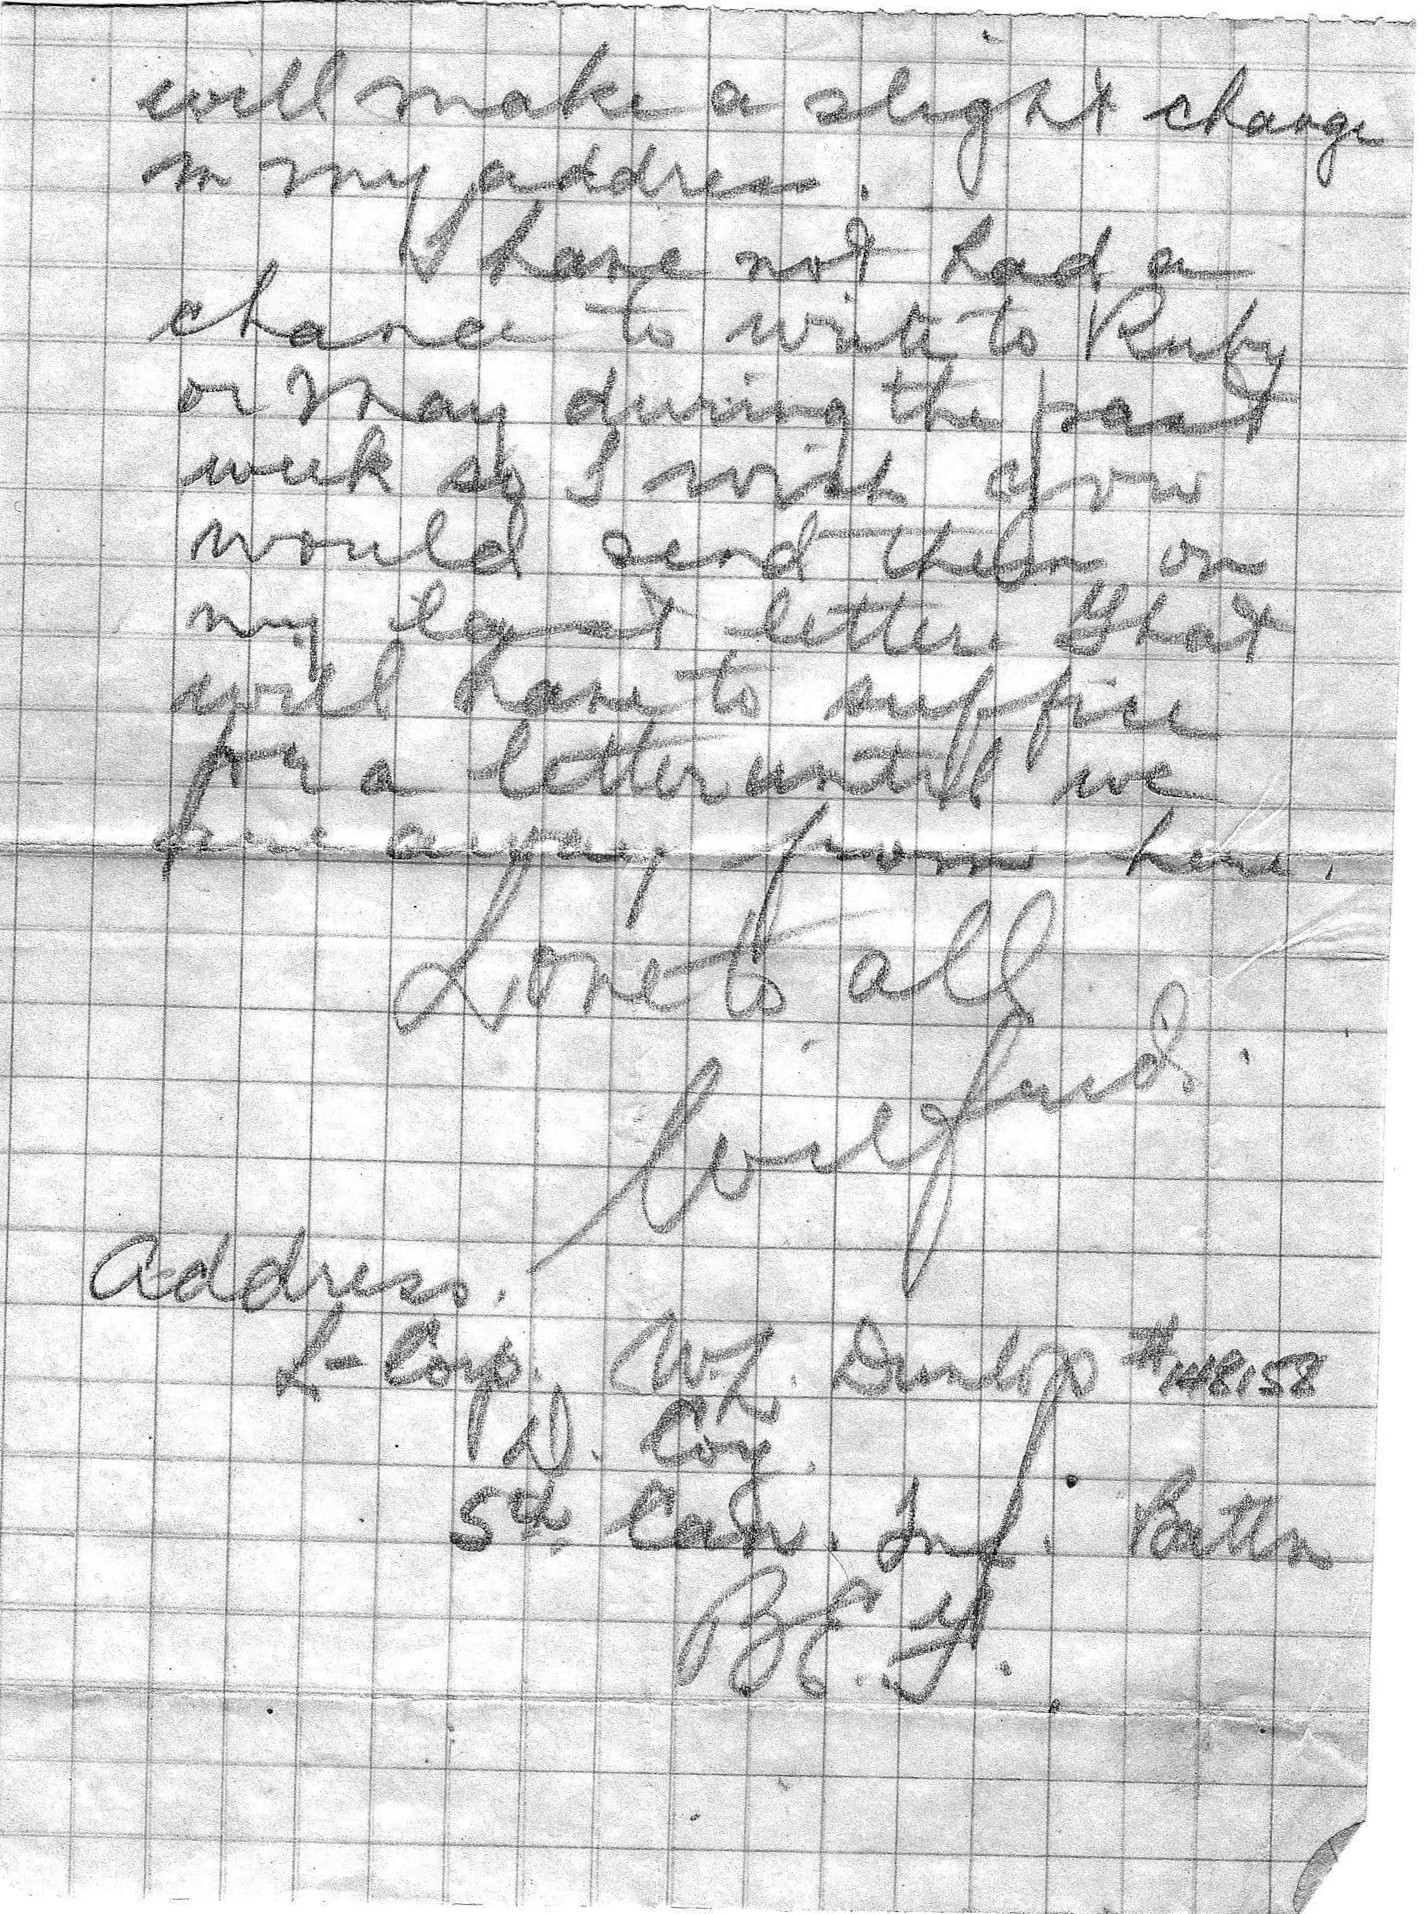 will make a slight change
in my address.
I have not had a
chance to write to Ruby
or May during the past
week so I wish you
would send them on
my last letter that
will have to suffice
for a letter until we
are away from here.
Love to all
Wilfred.
Address.
L-Corp. W.L. Dunlop #148158
D. Coy.
5th Can. Inf. Battn
B.E.F.